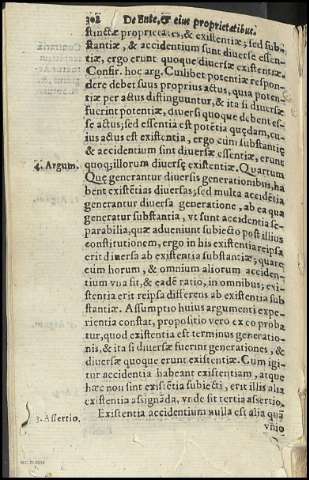 308 De Ente, & eius proprietatibus.
stinctæ proprietates, & existentiæ; sed sub-
stantiæ, & accidentium sunt diuersæ essen-
tiæ, ergo erunt quoque diuersæ existentiæ.
Confir. hoc arg. Cuilibet potentiæ respon-
dere debet suus proprius actus, quia poten-
tiæ per actus distinguuntur, & ita si diuersæ
fuerint potentiæ, diuersi quoque debent es-
se actus; sed essentia est potētia quędam, cu-
ius actus est existentia, ergo cum substantiæ
& accidentium sint diuersæ essentiæ, erunt
quoq; illorum diuersę existentiæ. Quartum
4. Argum.
Quę generantur diuersis generationibus, ha
bent existētias diuersas; sed multa accidētia
generantur diuersa generatione, ab ea qua
generatur substantia, vt sunt accidentia se-
parabilia, quæ adueniunt subiecto post illius
constitutionem, ergo in his existentia reipsa
erit diuersa ab existentia substantiæ; quare
cum horum, & omnium aliorum acciden-
tium vna sit, & eadē ratio, in omnibus; exi-
stentia erit reipsa differens ab existentia sub
stantiæ. Assumptio huius argumenti expe-
rientia constat, propositio vero ex eo proba
tur, quod existentia est terminus generatio-
nis, & ita si diuersæ fuerint generationes, &
diuersæ quoque erunt existentiæ. Cum igi-
tur accidentia habeant existentiam, atque
hæc non sint existētia subiecti, erit illis alia
existentia assignāda, vnde sit tertia assertio.
3. Assertio.
Existentia accidentium nulla est alia quā
vnio